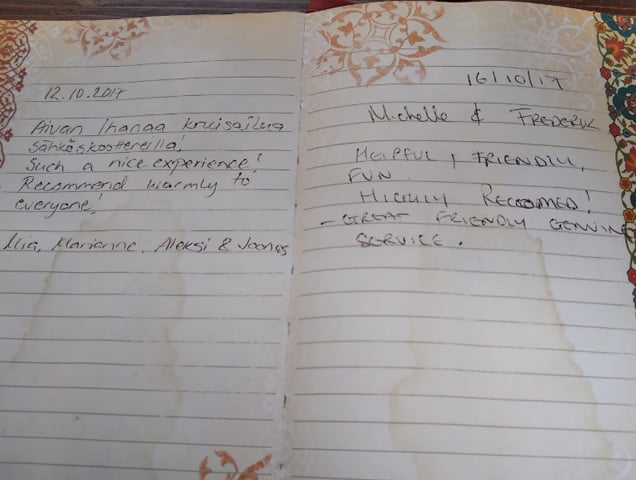 12.10.2017
Aivan ihanaa kruisailua
sähköskoottereilla!
Such a nice experience!
Recommend warmly to
everyone!
Miia, Marianne, Aleksi & Joonas
16/10/17
Michelle & FREDERIK
HELPFUL, FRIENDLY,
FUN
HIGHLY RECCOMED!
- GREAT FRIENDLY GENUIN
SERVICE.